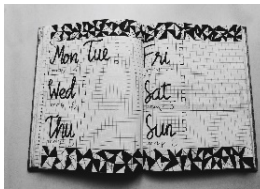 Mon Tue
Wed
Thu
Fri
Sat
Sun